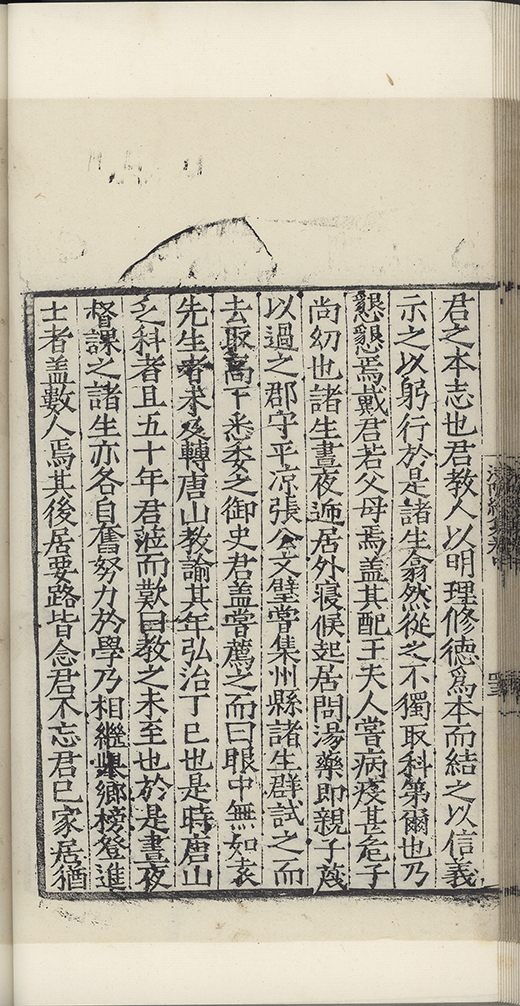 君之本志也君教人以明理修德爲本而結之以信義
示之以躬行於是諸生翕然從之不獨取科第爾也乃
懇懇焉戴君若父母焉盖其配王夫人嘗病疫甚危子
尚幼也諸生晝夜迊居外寢候起居問湯藥即親子蔑
以過之郡守平凉張公文璧嘗集州縣諸生群試之而
去取高下悉委之御史君盖嘗薦之而曰眼中無如袁
先生者未及轉唐山教諭其年弘治丁巳也是時唐山
乏科者且五十年君涖而歎曰教之未至也於是晝夜
督課之諸生亦各自奮努力於學乃相繼舉鄉榜登進
士者盖數人焉其後居要路皆念君不忘君已家居猶